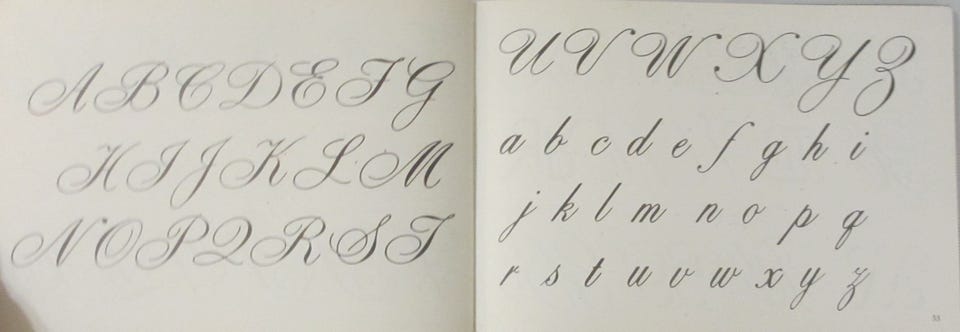 A B C D E F G
H I J K L M
N O P Q R S T
U V W X Y Z
a b c d e f g h i
j k l m n o p q
r s t u v w x y z
53